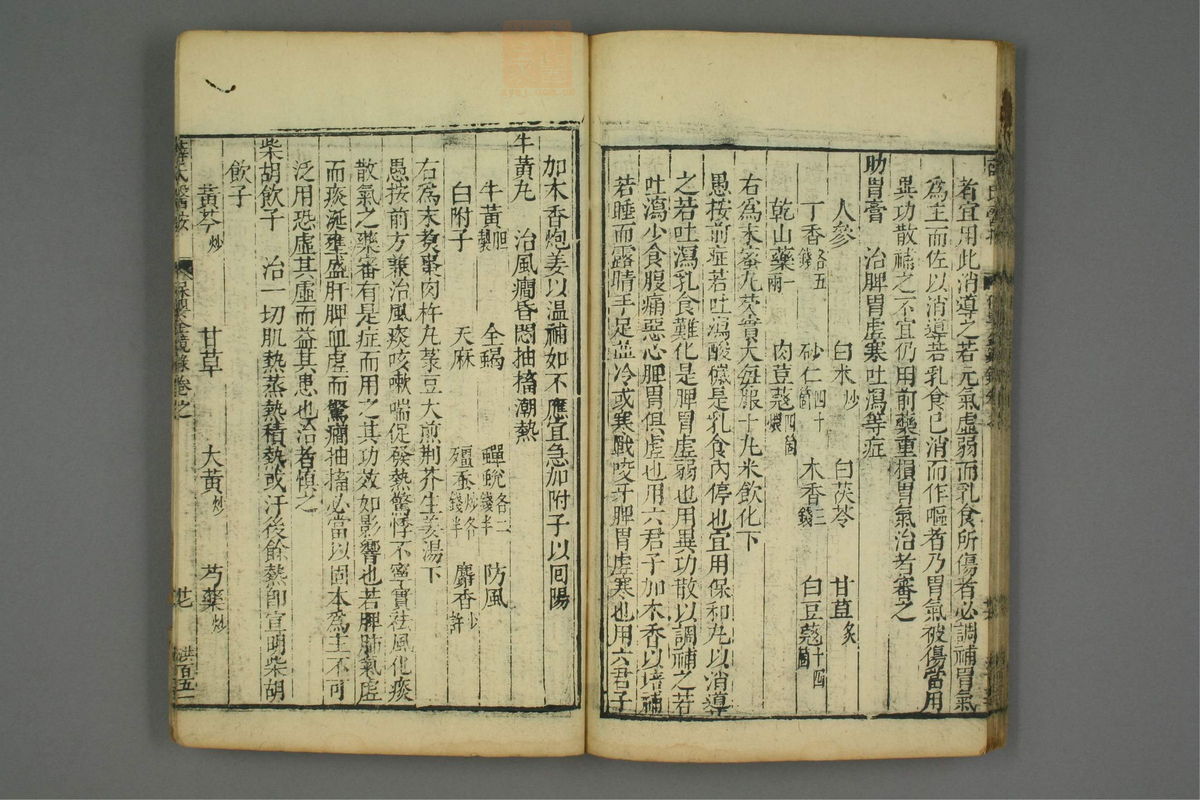 者宜用此消導之若元氣虛弱而乳食所傷者必調補胃氣
為主而佐以消導若乳食已消而作嘔者乃胃氣被傷當用
異功散補之不宜仍用前藥重損胃氣治者審之
助胃膏 治脾胃虛寒吐瀉等症
人參 白朮炒 白茯苓 甘草炙
丁香各五錢 砂仁四十箇 木香三錢 白豆蔻十四箇
乾山藥一兩 肉荳蔻四箇煨
右為末蜜丸芡實大每服十丸米飲化下
愚按前症若吐瀉酸餿是乳食內停也宜用保和丸以消導
之若吐瀉乳食難化是脾胃虛弱也用異功散以調補之若
吐瀉少食腹痛惡心脾胃俱虛也用六君子加木香以培補
若睡而露睛手足並冷或寒戰咬牙脾胃虛寒也用六君子
加木香炮姜以温補如不應宜急加附子以囘陽
牛黃丸 治風癎昏悶抽搐潮熱
牛黃 膽製 全蝎 蟬蛻各二錢半 防風
白附子 天麻 殭蚕炒各錢半 麝香少許
右為末煑棗肉杵丸菉豆大煎荆芥生姜湯下
愚按前方兼治風痰咳嗽喘促發熱驚悸不寧實祛風化痰
散氣之藥審有是症而用之其功效如影響也若脾肺氣虛
而痰涎壅盛肝脾血虛而驚癎抽搐必當以固本為主不可
泛用恐虛其虛而益其患也治者慎之
柴胡飲子 治一切肌熱蒸熱積熱或汗後餘熱即宣明柴胡
飲子
黃芩炒 甘草 大黃炒 芍藥炒
薛氏醫按 保嬰金鏡錄卷之 洪百五